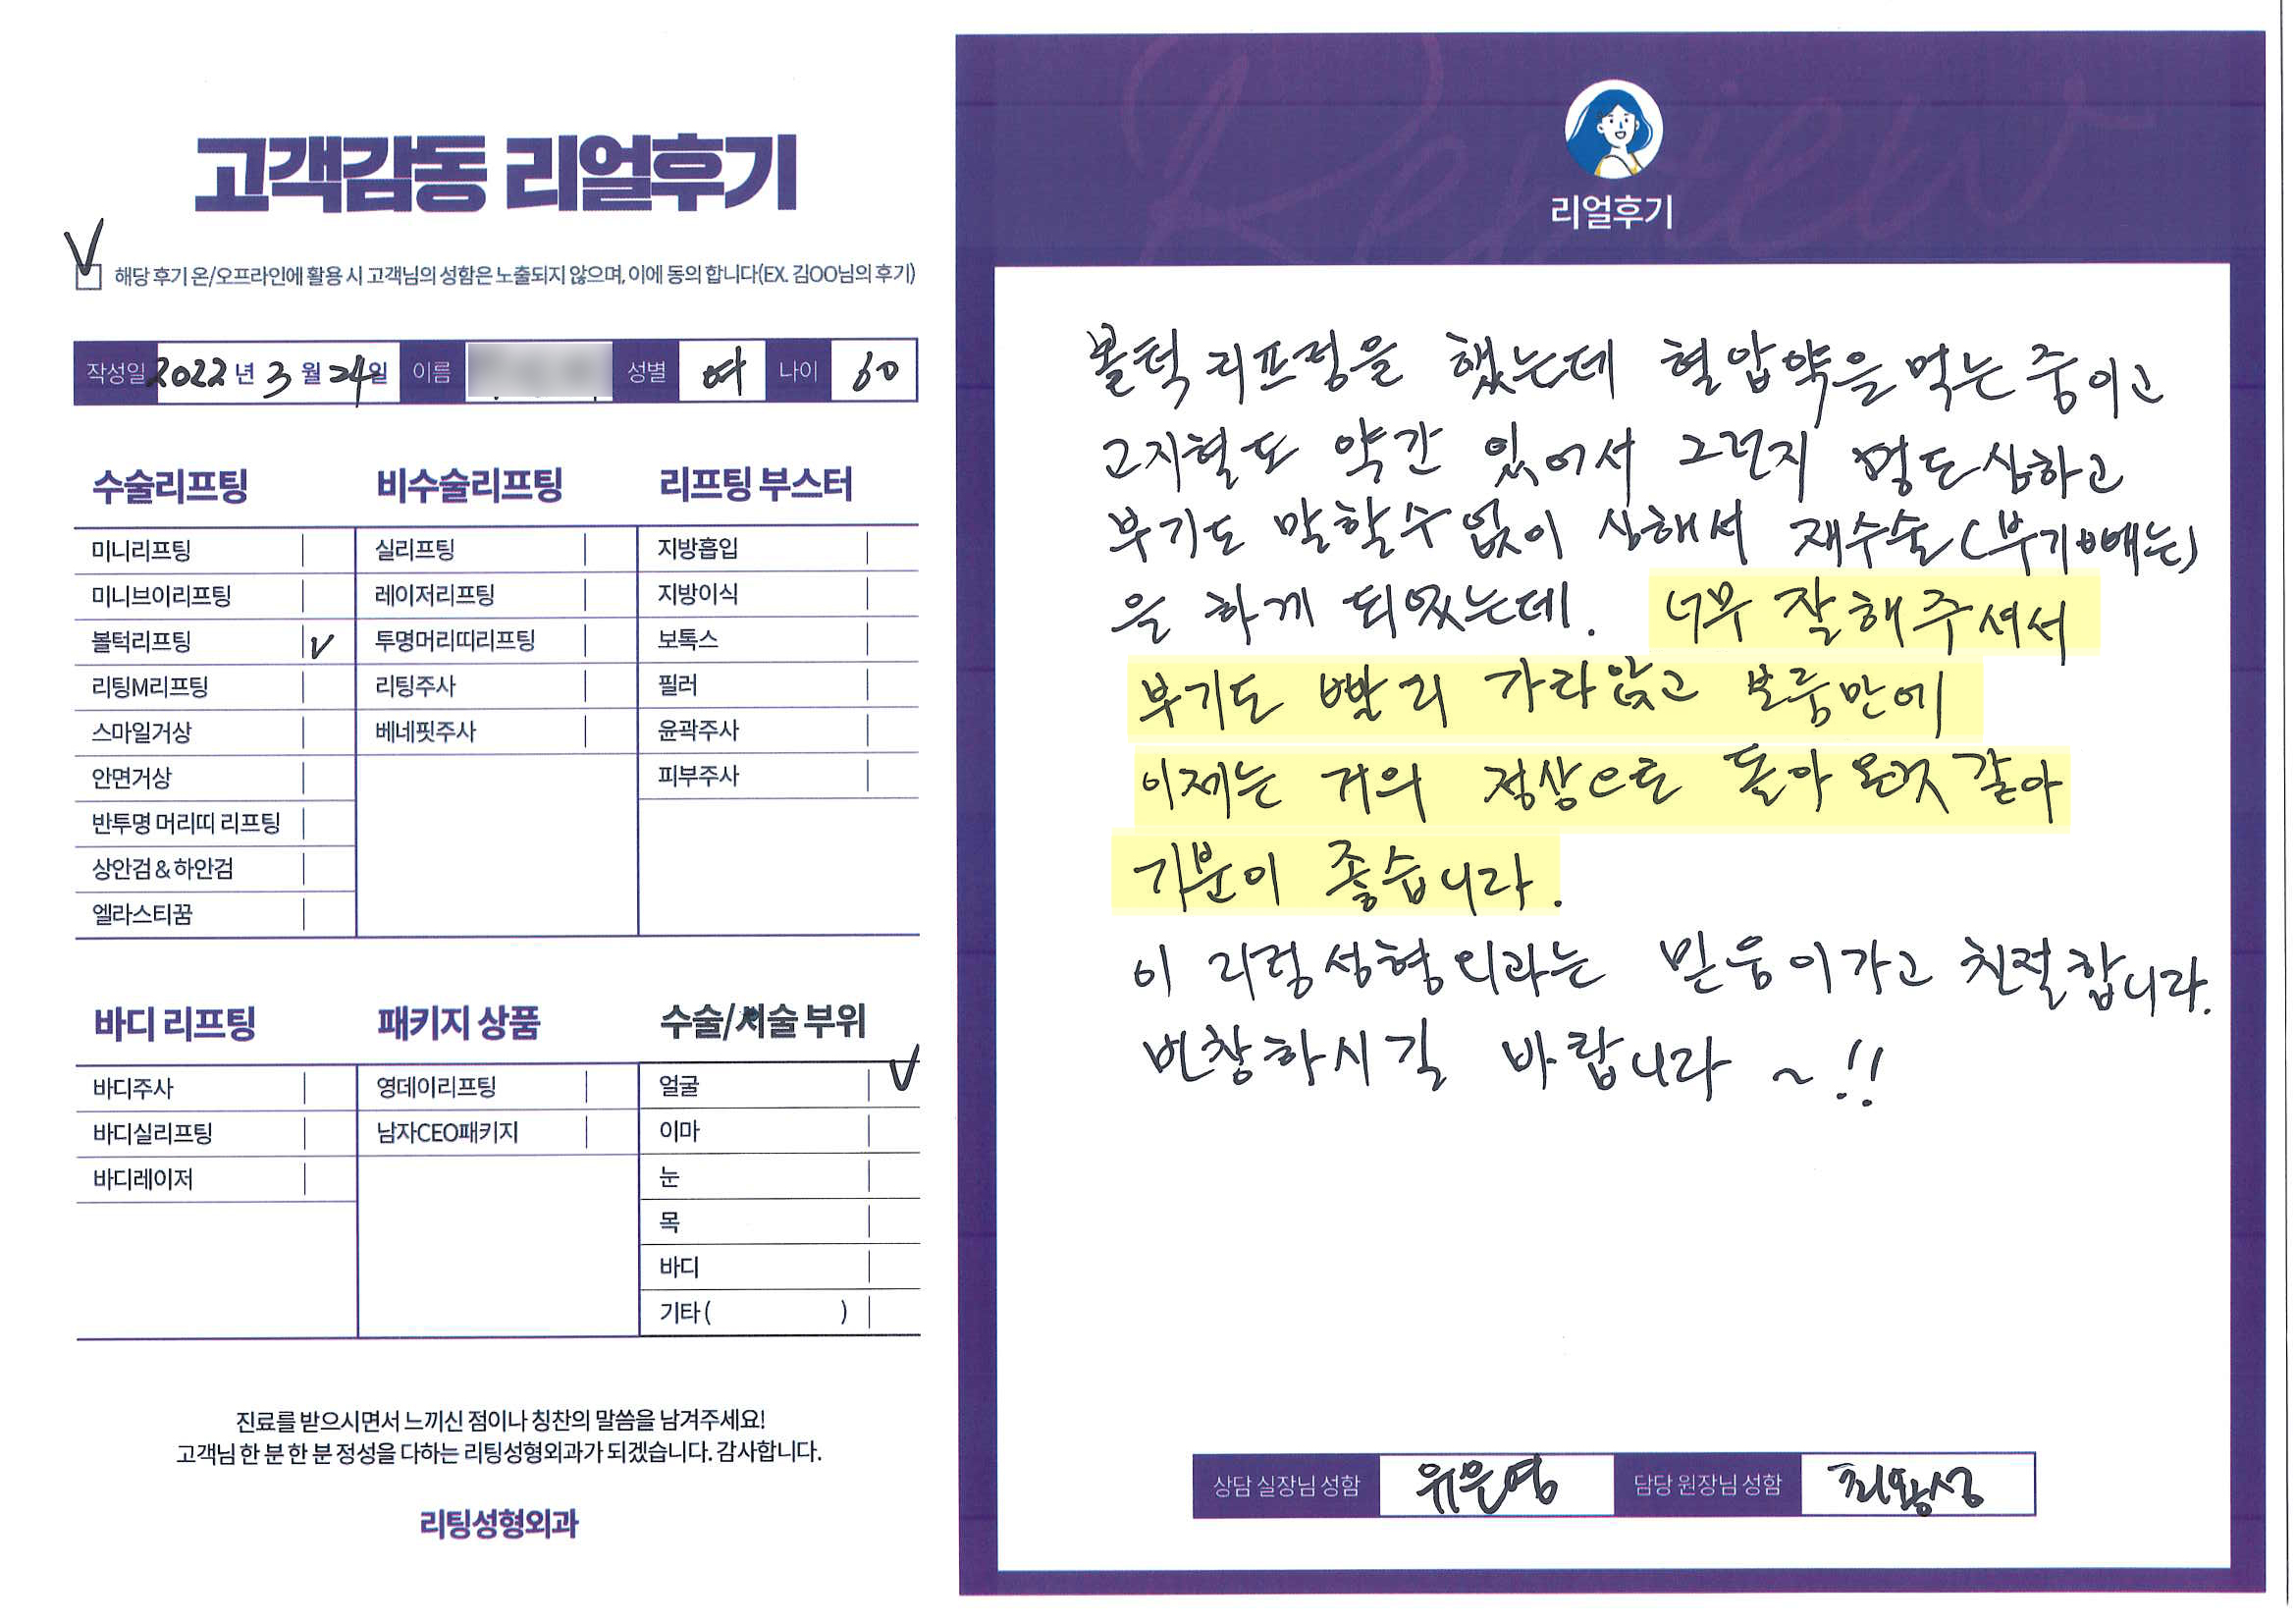 고객감동 리얼후기
해당 후기 온/오프라인에 활용 시 고객님의 성함은 노출되지 않으며, 이에 동의 합니다(EX. 김OO님의 후기)
작성일 2022년 3월 24일 이름 성별 여 나이 60
수술리프팅
미니리프팅
미니브이리프팅
볼턱리프팅 V
리팅M리프팅
스마일거상
안면거상
반투명 머리띠 리프팅
상안검 & 하안검
엘라스티꿈
비수술리프팅
실리프팅
레이저리프팅
투명머리띠리프팅
리팅주사
베네핏주사
리프팅 부스터
지방흡입
지방이식
보톡스
필러
윤곽주사
피부주사
바디 리프팅
바디주사
바디실리프팅
바디레이저
패키지 상품
영데이리프팅
남자CEO패키지
수술/시술 부위
얼굴 V
이마
눈
목
바디
기타 ( )
진료를 받으시면서 느끼신 점이나 칭찬의 말씀을 남겨주세요!
고객님 한 분 한 분 정성을 다하는 리팅성형외과가 되겠습니다. 감사합니다.
리팅성형외과
Review
리얼후기
볼턱 리프팅을 했는데 혈압약을 먹는 중이고
고지혈도 약간 있어서 그런지 멍도 심하고
부기도 말할수 없이 심해서 재수술(부기빼는)
을 하게 되었는데. 너무 잘해주셔서
부기도 빨리 가라앉고 보름만에
이제는 거의 정상으로 돌아 온것 같아
기분이 좋습니다.
이 리팅성형외과는 믿음이가고 친절합니다.
번창하시길 바랍니다 ~!!
상담 실장님 성함 위은영 담당 원장님 성함